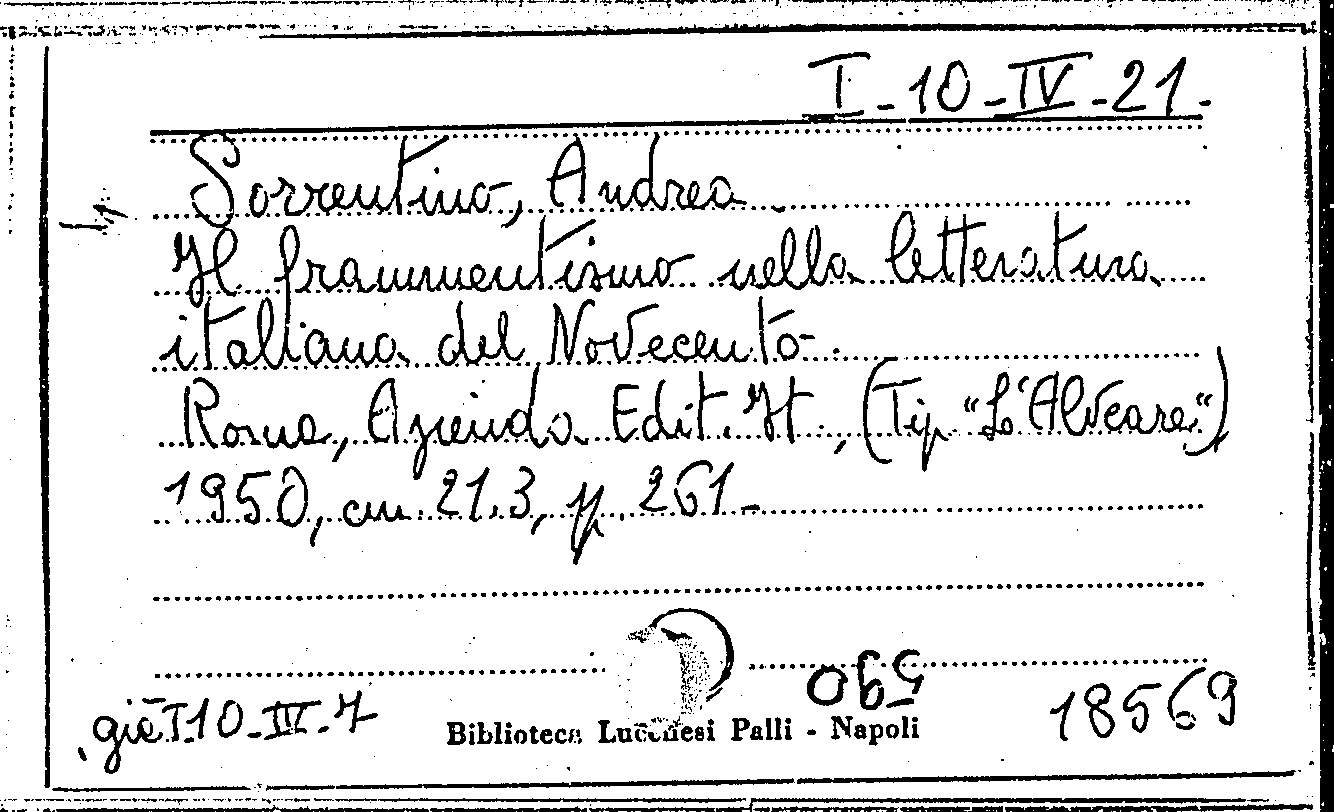 I-10-IV-21-
Sorrentino, Andrea
Il frammentismo nella letteratura
italiana del Novecento-
Roma, Azienda Edit. It., (Tip. "L'Alveare")
1950, cm. 21.3, pp. 261-
già I-10-III-7
Biblioteca Lucchesi Palli - Napoli
18569